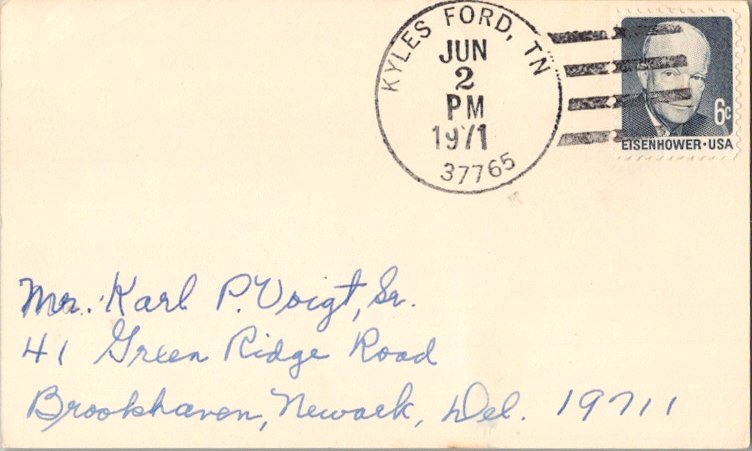 KYLES FORD, TN
JUN
2
PM
1971
37765
6c
EISENHOWER·USA
Mr. Karl P. Voigt, Sr.
41 Green Ridge Road
Brookhaven, Newark, Del. 19711